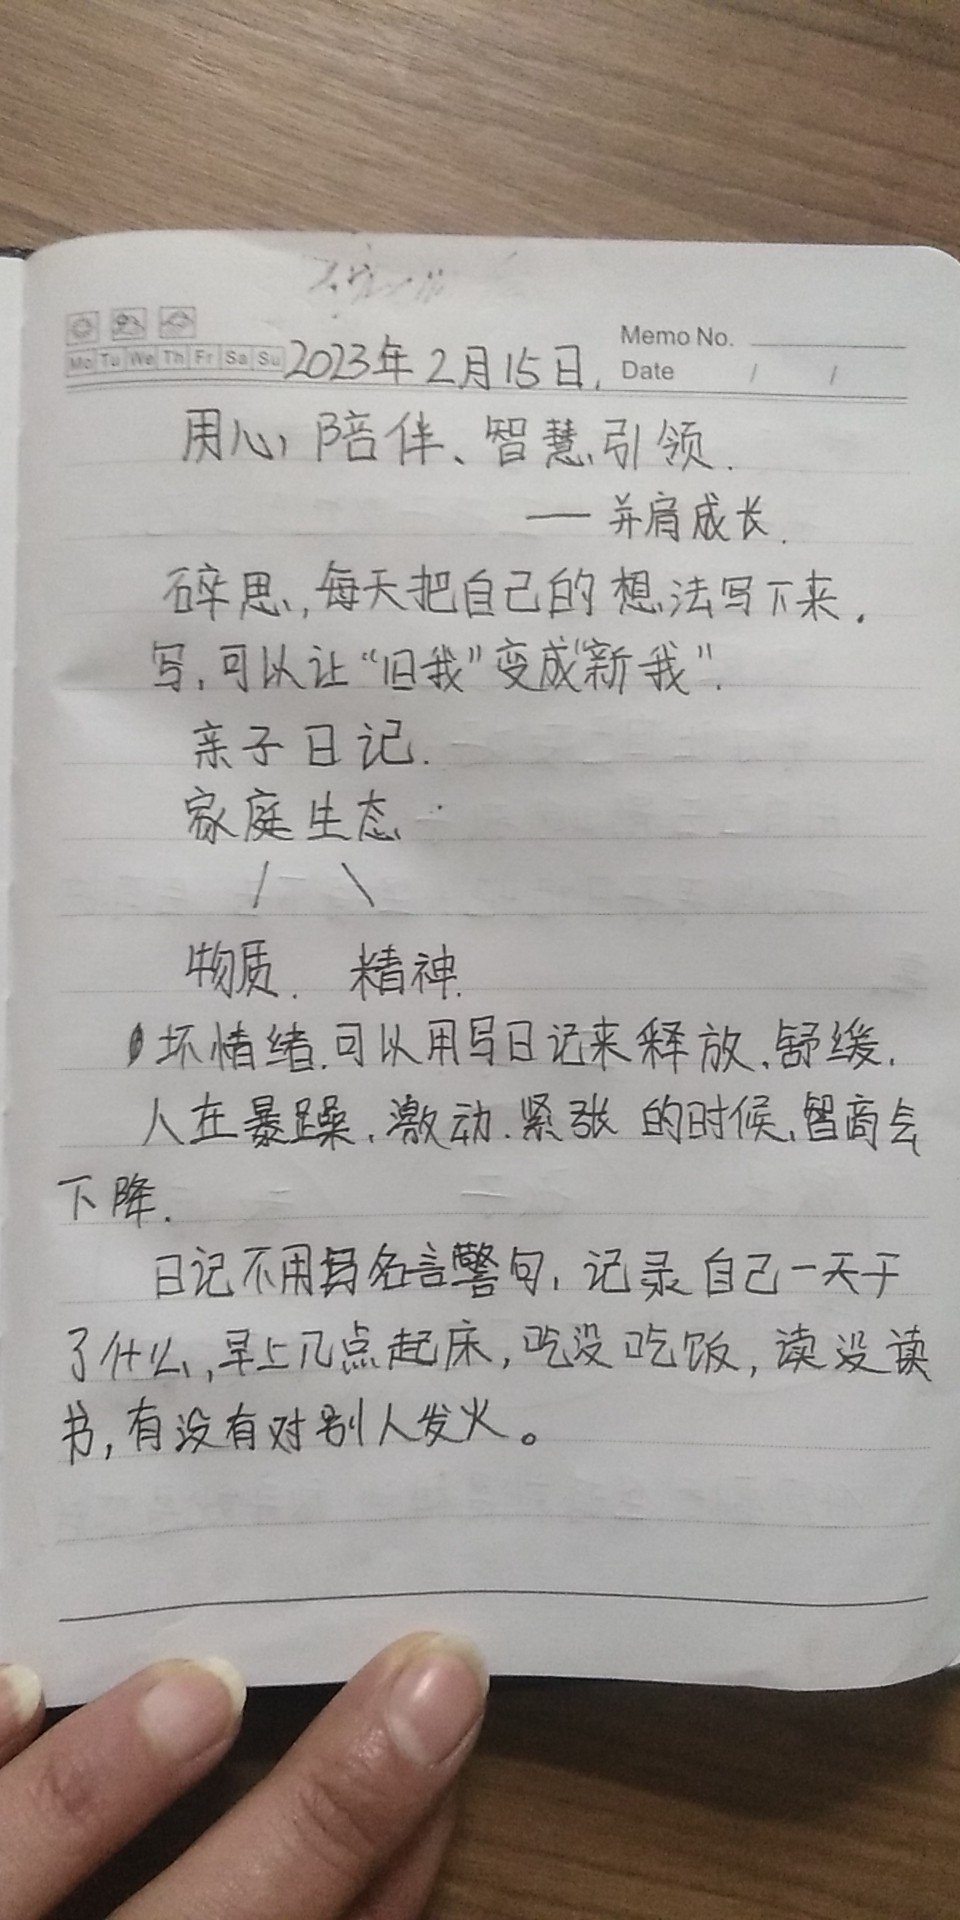 Memo No.
Mo Tu We Th Fr Sa Su 2023年2月15日. Date / /
用心陪伴、智慧引领.
——并肩成长.
碎思,每天把自己的想法写下来.
写,可以让“旧我”变成“新我”.
亲子日记.
家庭生态
物质. 精神.
坏情绪.可以用写日记来释放.舒缓.
人在暴躁.激动.紧张的时候,智商会
下降.
日记不用写名言警句,记录自己一天干
了什么,早上几点起床,吃没吃饭,读没读
书,有没有对别人发火。